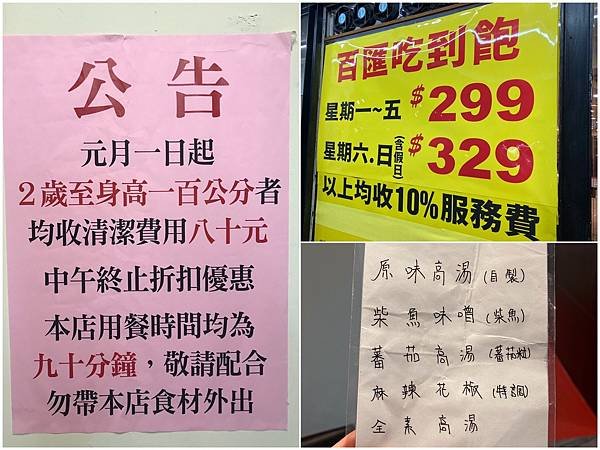 公告
元月一日起
2歲至身高一百公分者
均收清潔費用八十元
中午終止折扣優惠
本店用餐時間均為
九十分鐘，敬請配合
勿帶本店食材外出
百匯吃到飽
星期一~五 $299
星期六.日(含假日) $329
以上均收10%服務費
原味高湯(自製)
柴魚味噌(柴魚)
蕃茄高湯(蕃茄粒)
麻辣花椒(特調)
全素高湯